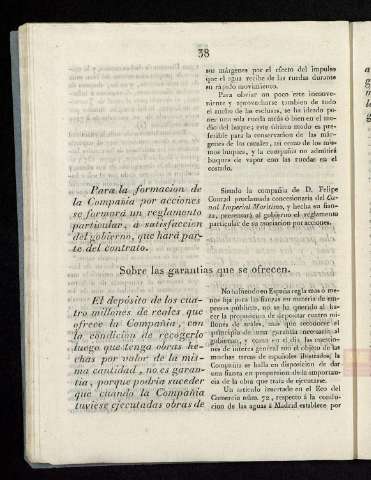 38
sus márgenes por el efecto del impulso
que el agua recibe de las ruedas durante
su rápido movimiento.
Para obviar un poco este inconve-
niente y aprovecharse tambien de todo
el ancho de las esclusas, se ha ideado po-
ner una sola rueda atrás ó bien en el me-
dio del buque; este último modo es pre-
ferible para la conservacion de las már-
genes de los canales, asi como de los mis-
mos buques, y la compañia no admitirá
buques de vapor con las ruedas en el
costado.
Para la formacion de
la Compañía por acciones
se formará un reglamento
particular, á satisfaccion
del gobierno, que hará par-
te del contrato.
Siendo la compañia de D. Felipe
Conrad proclamada concesionaria del Ca-
nal Imperial Marítimo, y hecha su fian-
za, presentará al gobierno el reglamento
particular de su asociacion por acciones.
Sobre las garantias que se ofrecen.
El depósito de los cua-
tro millones de reales que
ofrece la Compañía, con
la condicion de recogerlo
luego que tenga obras he-
chas por valor de la mis-
ma cantidad, no es garan-
tia, porque podria suceder
que cuando la Compañía
tuviese ejecutadas obras de
No habiendo en España regla mas ó me-
nos fija para las fianzas en materia de em-
presas públicas, no se ha querido al ha-
cer la proposicion de depositar cuatro mi-
llones de reales, mas que reconocer el
principio de una garantia necesaria al
gobierno, y como en el dia las cuestio-
nes de interés general son el objeto de las
muchas tareas de españoles ilustrados; la
Compañia se halla en disposicion de dar
una fianza en proporcion de la importan-
cia de la obra que trata de ejecutarse.
Un artículo insertado en el Eco del
Comercio núm. 72, respecto á la condu-
cion de las aguas á Madrid establece por